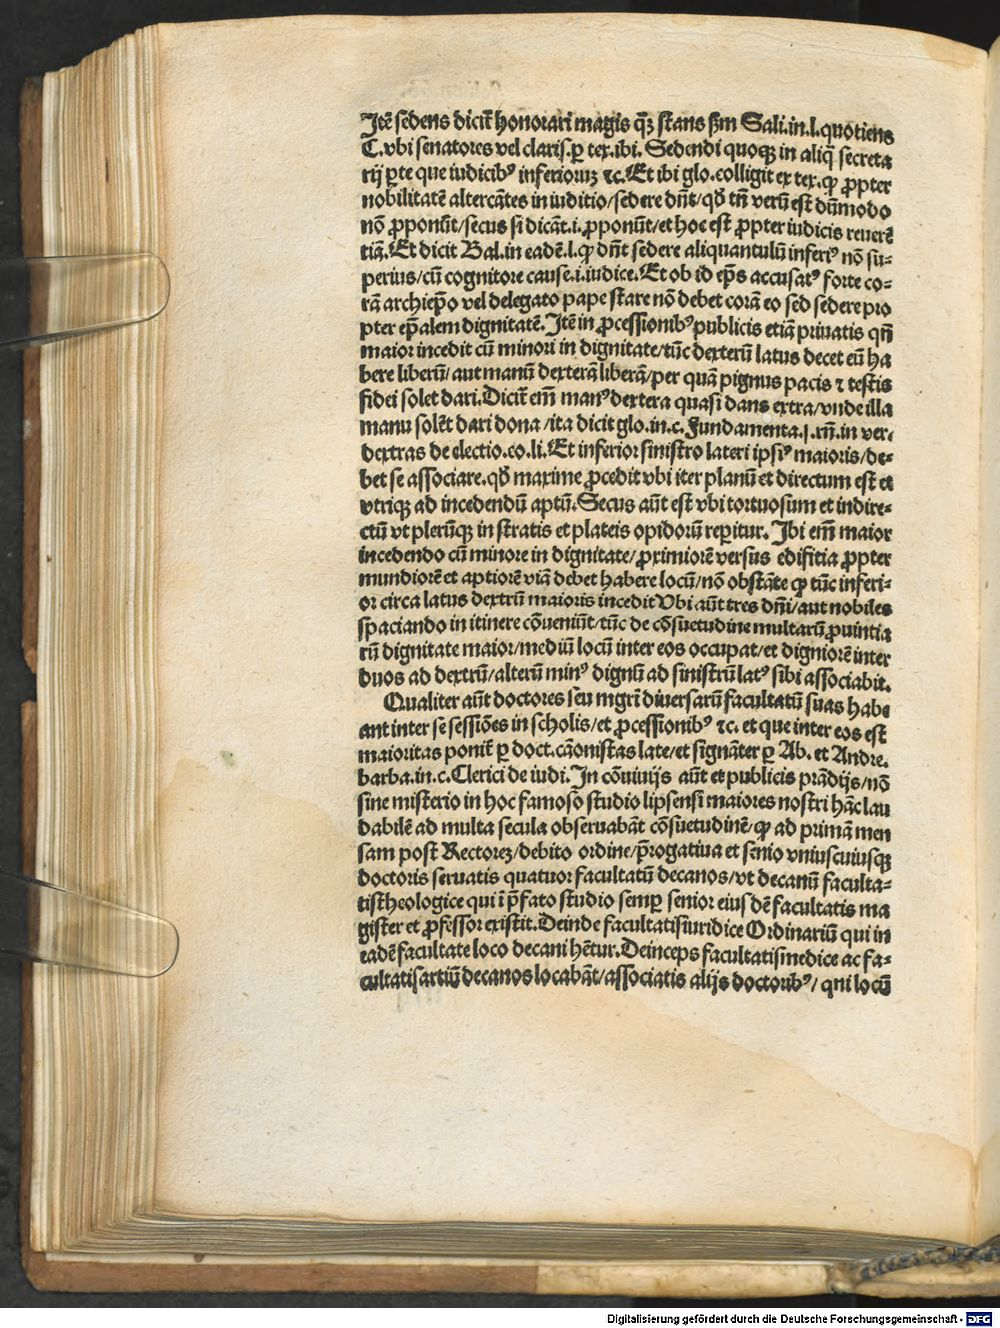 Jtē sedens dicit̄ honorari magis q̄ꝫ stans ẜm Sali.in.l.quotiens
C.vbi senatores vel claris.ꝑ tex.ibi. Sedendi quoqꝫ in aliq̄ secreta
rij ꝑte que iudicib⁹ inferioruꝫ ⁊c. Et ibi glo.colligit ex tex.ꝙ ꝓpter
nobilitatē altercātes in iuditio/sedere dn̄t/qđ tn̄ verū est dūmodo
nō ꝓponūt/secus si dicāt.i.ꝓponūt/et hoc est ꝓpter iudicis reuerē
tiā.Et dicit Bal.in eadē.l.ꝙ dn̄t sedere aliquantulū inferi⁹ nō su⸗
perius/cū cognitore cause.i.iudice.Et ob id ep̄s accusat⁹ forte co⸗
rā archiep̄o vel delegato pape stare nō debet corā eo sed sedere pro
pter ep̄alem dignitatē.Jtē in ꝓcessionib⁹ publicis etiā priuatis qn̄
maior incedit cū minori in dignitate/tūc dexterū latus decet eū ha
bere liberū/aut manū dexterā liberā/per quā pignus pacis ⁊ testis
fidei solet dari.Dicit̄ em̄ man⁹ dextera quasi dans extra/vnde illa
manu solēt dari dona/ita dicit glo.in.c.Fundamenta.j.rn̄.in ver⸗
dextras de electio.eo.li.Et inferior sinistro lateri ipsi⁹ maioris/de⸗
bet se associare.qđ maxime ꝓcedit vbi iter planū et directum est et
vtriqꝫ ad incedendū aptū.Secus aūt est vbi tortuosum et indire⸗
ctū vt plerūqꝫ in stratis et plateis opidorū reꝑitur. Jbi em̄ maior
incedendo cū minore in dignitate/ꝓximiorē versus edifitia ꝓpter
mundiorē et aptiorē viā debet habere locū/nō obstāte ꝙ tūc inferi⸗
or circa latus dextrū maioris incedit Vbi aūt tres dn̄i/aut nobiles
spaciando in itinere cōueniūt/tūc de cōsuetudine multarū ꝓuintia
rū dignitate maior/mediū locū inter eos occupat/et digniorē inter
duos ad dextrū/alterū min⁹ dignū ad sinistrū lat⁹ sibi associabit.
Qualiter aūt doctores seu mgr̄i diuersarū facultatū suas habe
ant inter se sessiōes in scholis/et ꝓcessionib⁹ ⁊c. et que inter eos est
maioritas ponit̄ ꝑ doct.cāonistas late/et signāter ꝑ Ab. et Andre.
barba.in.c.Clerici de iudi.Jn cōuiuijs aūt et publicis prādijs/nō
sine misterio in hoc famoso studio lipsensi maiores nostri hāc lau
dabilē ad multa secula obseruabāt cōsuetudinē/ꝙ ad primā men
sam post Rectoreꝫ/debito ordine/p̄rogatiua et senio vniuscuiusqꝫ
doctoris seruatis quatuor facultatū decanos/vt decanū faculta⸗
tis theologice qui ī p̄fato studio semꝑ senior eiusdē facultatis ma
gister et ꝓfessor existit.Deinde facultatis iuridice Ordinariū qui in
eadē facultate loco decani hētur.Deinceps facultatis medice ac fa⸗
cultatis artiū decanos locabāt/associatis alijs doctorib⁹/ qui locū
Digitalisierung gefördert durch die Deutsche Forschungsgemeinschaft - DFG